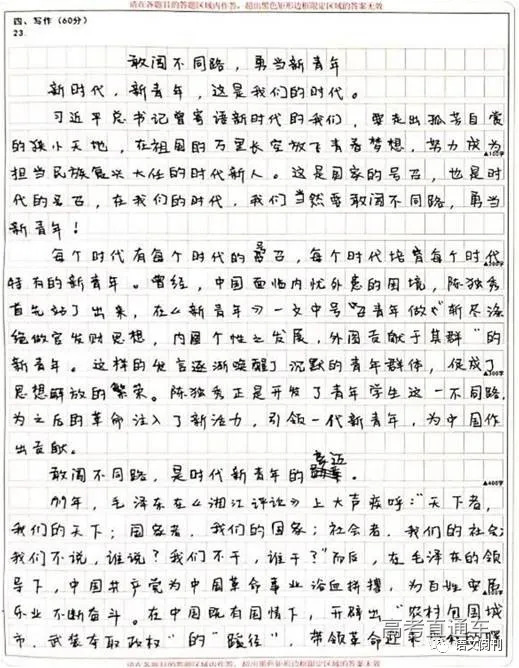 请在各题目的答题区域内作答，超出黑色矩形边框限定区域的答案无效
四、写作（60分）
23.
敢闯不同路，勇当新青年
新时代，新青年，这是我们的时代。
习近平总书记曾寄语新时代的我们，要走出孤芳自赏
的狭小天地，在祖国的万里长空放飞青春梦想，努力成为
担当民族复兴大任的时代新人。这是国家的号召，也是时
▲100字
代的号召，在我们的时代，我们当然要敢闯不同路，勇当
新青年！
每个时代有每个时代的号召，每个时代培育每个时代
特有的新青年。曾经，中国面临内忧外患的困境，陈独秀
首先站了出来，在《新青年》一文中号召青年做“斩尽涤
绝做官发财思想，内图个性之发展，外图贡献于其群”的
新青年。这样的发言逐渐唤醒了沉默的青年群体，促成了
▲300字
思想解放的繁荣。陈独秀正是开发了青年学生这一不同路，
为之后的革命注入了新活力，引领一代新青年，为中国作
出贡献。
敢闯不同路，是时代新青年的豪迈。
▲400字
19年，毛泽东在《湘江评论》上大声疾呼：“天下者，
我们的天下；国家者，我们的国家；社会者，我们的社会；
我们不说，谁说？我们不干，谁干？”而后，在毛泽东的领
导下，中国共产党为中国革命事业浴血拼搏，为百姓安居
乐业不断奋斗。在中国既有国情下，开辟出“农村包围城
市，武装夺取政权”的“路径”，带领革命
高考直通车
语文周刊
请在各题目的答题区域内作答，超出黑色矩形边框限定区域的答案无效